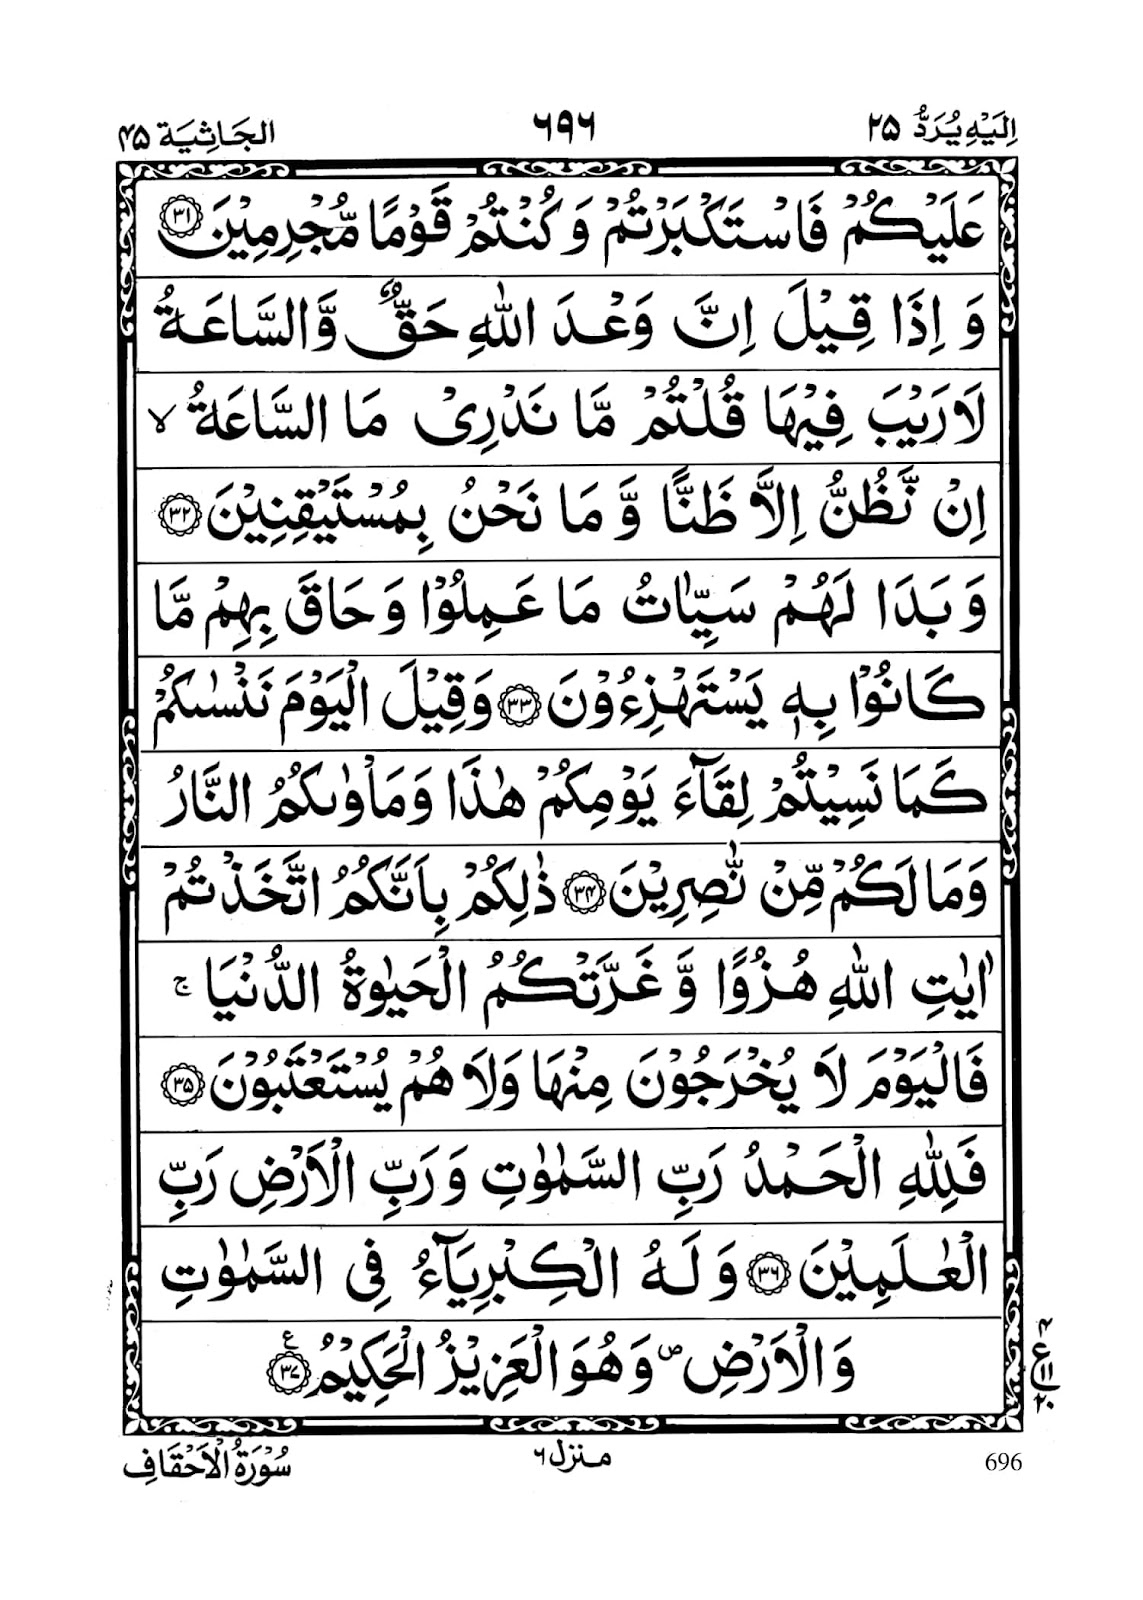 اِلَيْهِ يُرَدُّ ۲۵ ٦٩٦ الجَاثِيَة ۴۵
عَلَيْكُمْ فَاسْتَكْبَرْتُمْ وَكُنْتُمْ قَوْمًا مُّجْرِمِيْنَ ۳۱
وَ اِذَا قِيْلَ اِنَّ وَعْدَ اللّٰهِ حَقٌّ وَّالسَّاعَةُ
لَا رَيْبَ فِيْهَا قُلْتُمْ مَّا نَدْرِىْ مَا السَّاعَةُ ۙ
اِنْ نَّظُنُّ اِلَّا ظَنًّا وَّ مَا نَحْنُ بِمُسْتَيْقِنِيْنَ ۳۲
وَ بَدَا لَهُمْ سَيِّاٰتُ مَا عَمِلُوْا وَ حَاقَ بِهِمْ مَّا
كَانُوْا بِهٖ يَسْتَهْزِءُوْنَ ۳۳ وَقِيْلَ الْيَوْمَ نَنْسٰىكُمْ
كَمَا نَسِيْتُمْ لِقَآءَ يَوْمِكُمْ هٰذَا وَمَاْوٰىكُمُ النَّارُ
وَمَا لَكُمْ مِّنْ نّٰصِرِيْنَ ۳۴ ذٰلِكُمْ بِاَنَّكُمُ اتَّخَذْتُمْ
اٰيٰتِ اللّٰهِ هُزُوًا وَّ غَرَّتْكُمُ الْحَيٰوةُ الدُّنْيَا ۚ
فَالْيَوْمَ لَا يُخْرَجُوْنَ مِنْهَا وَلَا هُمْ يُسْتَعْتَبُوْنَ ۳۵
فَلِلّٰهِ الْحَمْدُ رَبِّ السَّمٰوٰتِ وَ رَبِّ الْاَرْضِ رَبِّ
الْعٰلَمِيْنَ ۳۶ وَ لَهُ الْكِبْرِيَآءُ فِى السَّمٰوٰتِ
وَ الْاَرْضِ ص وَ هُوَ الْعَزِيْزُ الْحَكِيْمُ ۳۷ ع
۴ ع ۱۱ ۲۰
سُوْرَةُ الْاَحْقَافِ منزل ۶ 696